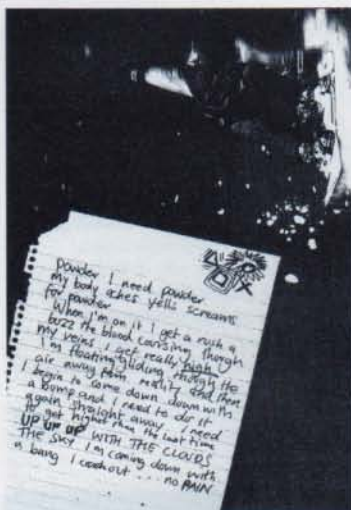 powder I need powder
my body aches yells screams
for powder
When I'm on it I get a rush a
buzz the blood coursing though
my veins I get really high
I'm floating gliding though the
air away from reality and then
I begin to come down down with
a bump and I need to do it
again straight away I need
to get higher than the last time
UP UP UP WITH THE CLOUDS
THE SKY I'm coming down with
a bang I crash out ... no PAIN